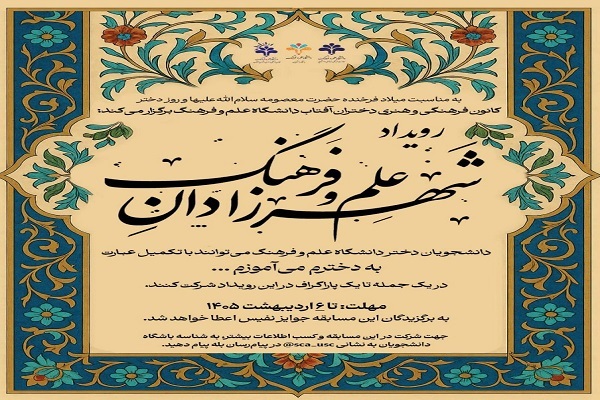 به مناسبت میلاد فرخنده حضرت معصومه سلام الله علیها و روز دختر
کانون فرهنگی و هنری دختران آفتاب دانشگاه علم و فرهنگ برگزار می‌کند:
رویداد
شهرزادان علم و فرهنگ
دانشجویان دختر دانشگاه علم و فرهنگ می‌توانند با تکمیل عبارت
به دخترم می‌آموزم ...
در یک جمله تا یک پاراگراف در این رویداد شرکت کنند.
مهلت: تا ۶ اردیبهشت ۱۴۰۵
به برگزیدگان این مسابقه جوایز نفیس اعطا خواهد شد.
جهت شرکت در این مسابقه و کسب اطلاعات بیشتر، به شناسه باشگاه
دانشجویان به نشانی @sca_usc در پیام‌رسان بله پیام دهید.